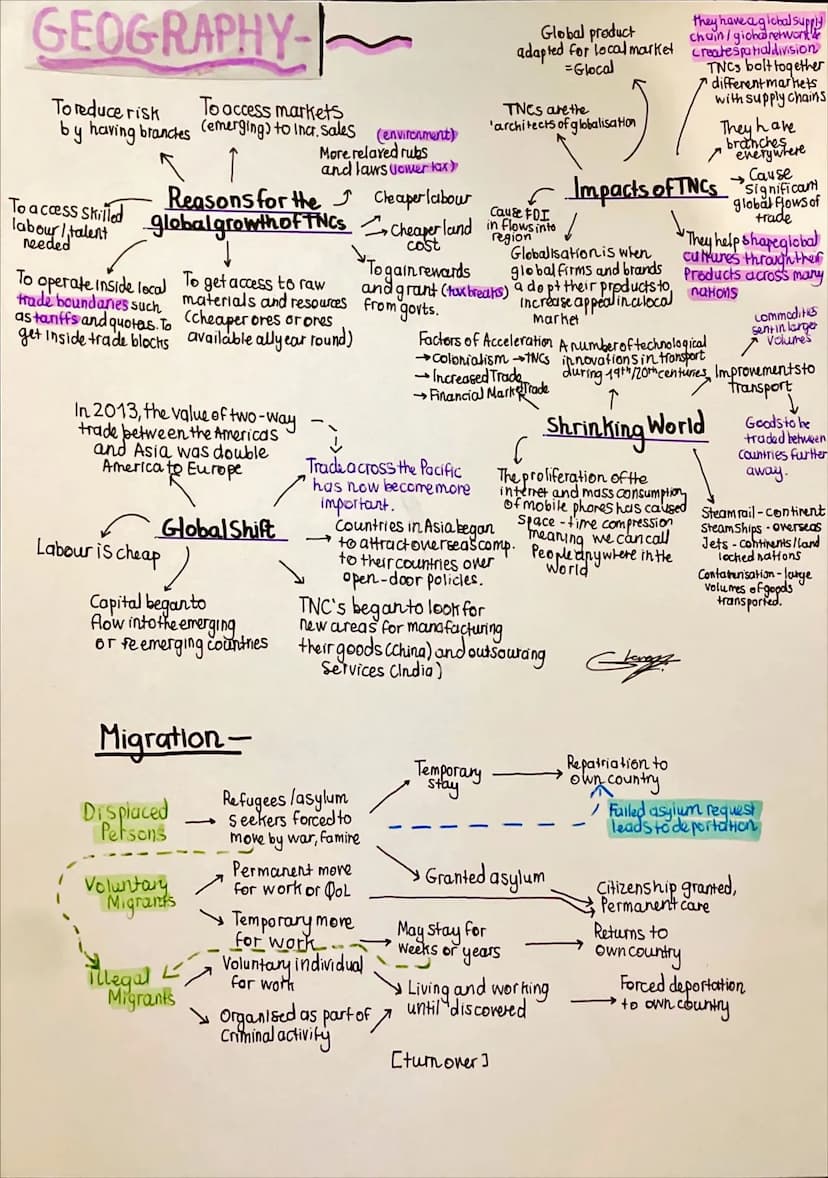 GEOGRAPHY-
To reduce risk
by having branches
To access markets
(emerging) to incr. sales
(environment)
More relaxed
and laws (lower tax)
Reasons for the
global growth of TNCs
To access skilled
labour/talent
needed
Cheaper labour
Cheaper land
cost
To operate inside local
trade boundaries such
as tariffs and quotas. To
get inside trade blocks
To get access to raw
materials and resources
(cheaper ores or ores
available all year round)
To gain rewards
and grant (tax breaks)
from govts.
Global product
adapted for local market
= Glocal
They have a global supply
chain/global network &
create spatial division
TNCs bolt together
different markets
with supply chains
TNCs are the
'architects of globalisation
They have
branches
everywhere
Impacts of TNCs
Cause
significant
global flows of
trade
Cause FDI
in flows into
region
Globalisation is when
global firms and brands
adopt their products to
increase appeal in a local
market
They help shape global
cultures through their
products across many
nations
Factors of Acceleration
→ Colonialism → TNCs
→ Increased Trade
→ Financial Market Trade
A number of technological
innovations in transport
during 19th/20th centuries
commodities
sent in larger
volumes
Improvements to
transport
Shrinking World
Goods to be
traded between
countries further
away.
The proliferation of the
internet and mass consumption
of mobile phones has caused
space-time compression
meaning we can call
People anywhere in the
world
Steam rail - continent
Steam Ships - overseas
Jets - continents/land
locked nations
Containerisation - large
volumes of goods
transported.
In 2013, the value of two-way
trade between the Americas
and Asia was double
America to Europe
Trade across the Pacific
has now become more
important.
Global Shift
Labour is cheap
Countries in Asia began
to attract overseas comp.
to their countries over
open-door policies.
Capital began to
flow into the emerging
or re emerging countries
TNC's began to look for
new areas for manufacturing
their goods (China) and outsourcing
Services (India)
Migration-
Displaced
Persons
Refugees/asylum
seekers forced to
move by war, famine
Temporary
stay
Repatriation to
own country
Failed asylum request
leads to deportation
Granted asylum
Citizenship granted,
Permanent care
Voluntary
Migrants
Permanent move
for work or QoL
Temporary move
for work
May stay for
weeks or years
Returns to
own country
illegal
Migrants
Voluntary individual
for work
Organised as part of
Criminal activity
Living and working
until discovered
Forced deportation
to own country
[turn over]